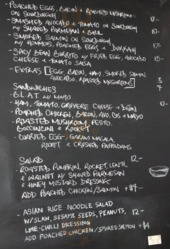 - POACHED EGG, BACON & ROASTED MUSHROOM
ON SOURDOUGH
- SMASHED AVOCADO & TOMATO ON SOURDOUGH
W/ SHAVED PARMESAN & BALM
- SMOKED SALMON ON SOURDOUGH
W/ POACHED EGGS & DUKKAH
- SPICY BEAN BURRITO W/ FRIED EGG, AVOCADO
CHEESE & TOMATO SALSA
- EXTRAS [EGG, BACON, HAM, SMOKED SALMON
SANDWICHES
- B.L.A.T W/ MAYO
- HAM, TOMATO, GRUYERE CHEESE &
- POACHED CHICKEN, BACON, & MAYO
- ROASTED MUSHROOM, PESTO,
BOCCONCINI & ROCKET
- CURRIED EGG, GARAM MASALA
ROCKET & CRUSHED PAPPADUMS
SALAD
- ROASTED PUMPKIN, ROCKET, LENTIL 12-
& WALNUT W/ SHAVED PARMESAN
& HONEY MUSTARD DRESSING
ADD POACHED CHICKEN/SALMON + $4
- ASIAN RICE NOODLE SALAD 12-
W/ SLAW, SESAME SEEDS, PEANUTS,
LIME-CHILLI DRESSING
ADD POACHED CHICKEN/SMOKED SALMON + $4